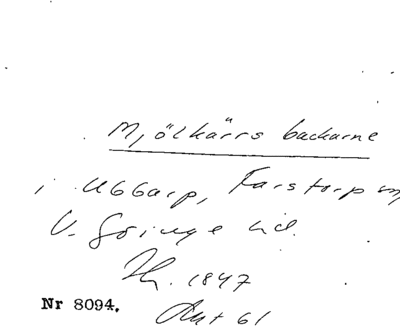 Mjölkärrs backarne
i Ubbarp, Farstorp sn,
V. Göinge hd.
1847
Nr 8094. Akt 61